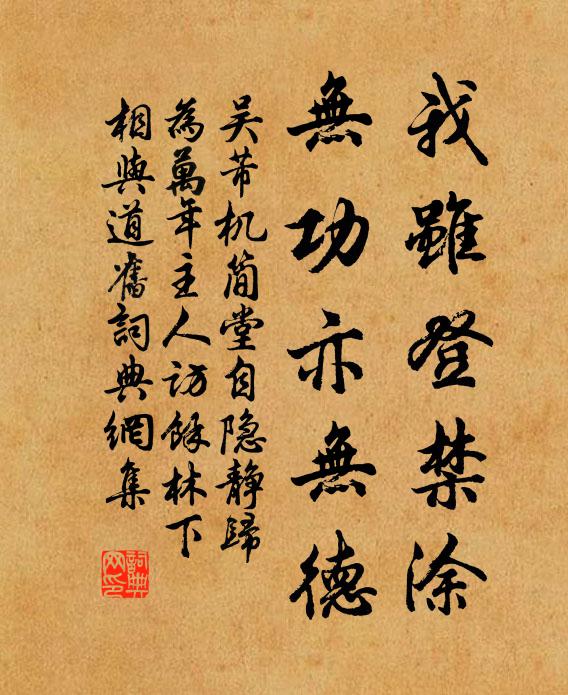 我雖登禁涂
無功亦無德
吴芾机简堂自隐静歸
為萬年主人訪餘林下
相與道舊詞典網集
詞典網印